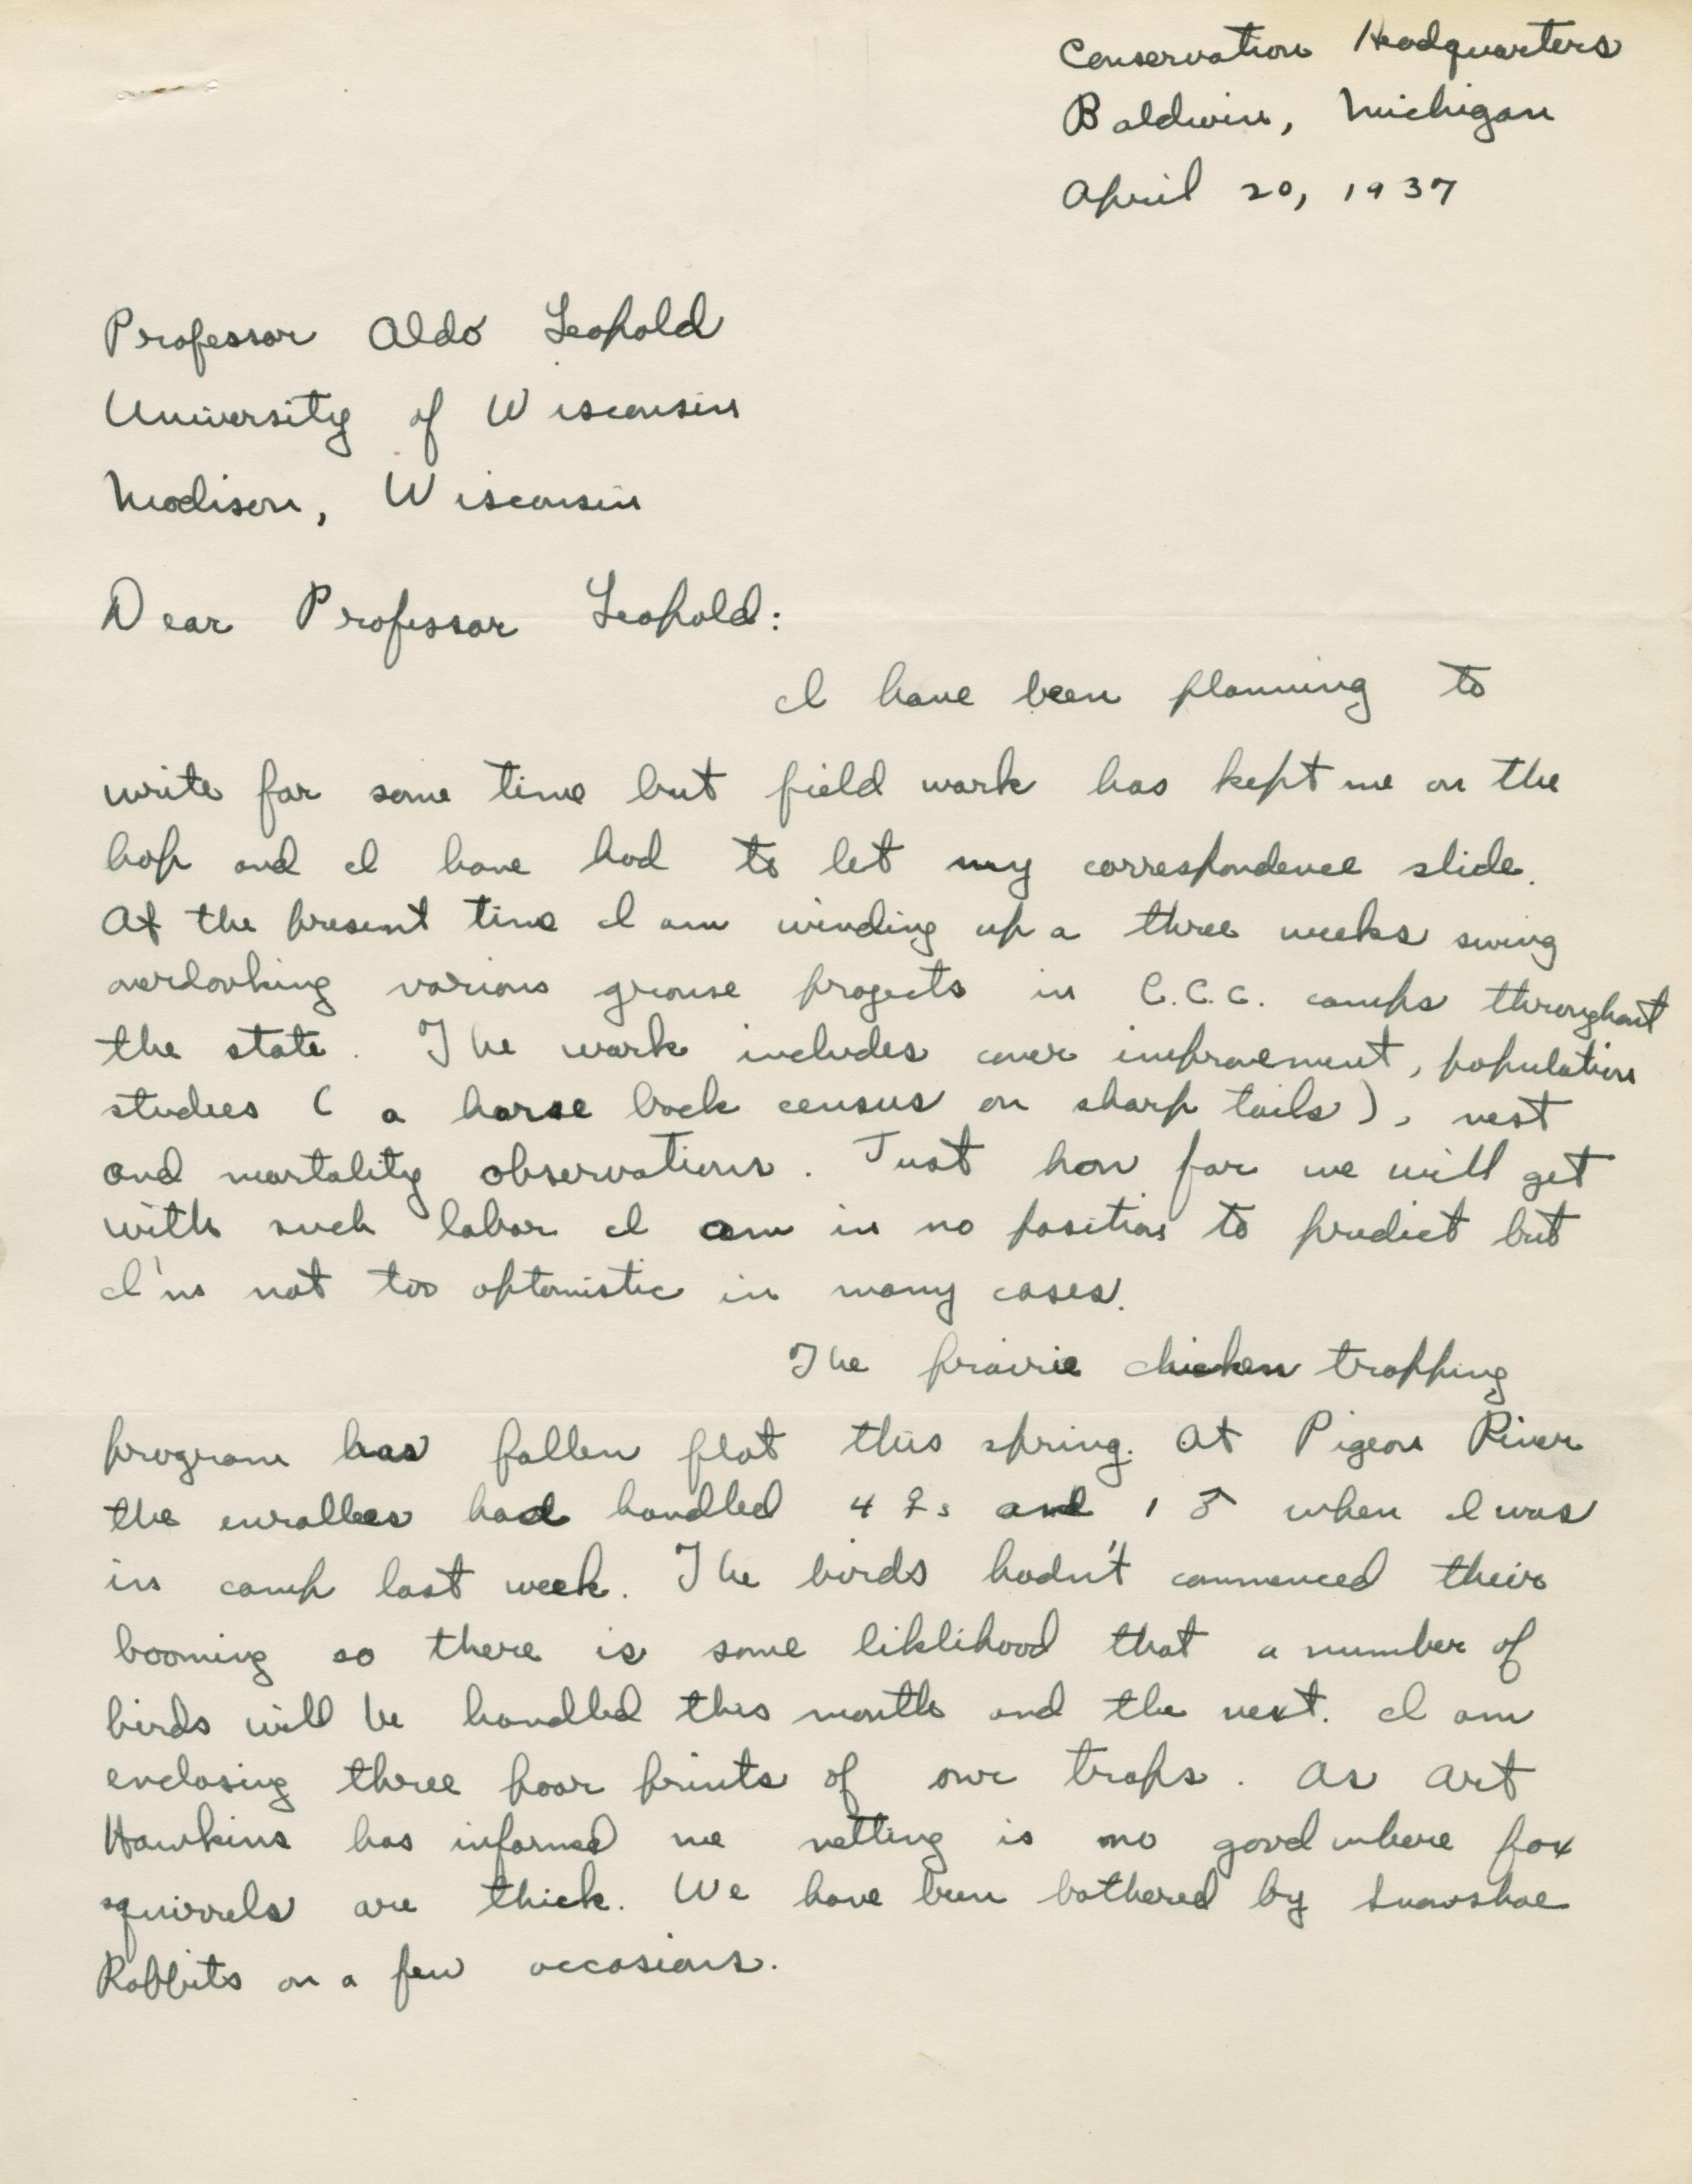 Conservation Headquarters
Baldwin, Michigan
April 20, 1937
Professor Aldo Leopold
University of Wisconsin
Madison, Wisconsin
Dear Professor Leopold:
I have been planning to
write for some time but field work has kept me on the
hop and I have had to let my correspondence slide.
At the present time I am winding up a three weeks swing
overlooking various grouse projects in C.C.C. camps throughout
the state. The work includes cover improvement, population
studies ( a horse back census on sharp tails ), nest
and mortality observations. Just how far we will get
with such labor I am in no position to predict but
I'm not too optomistic in many cases.
The prairie chicken trapping
program has fallen flat this spring. At Pigeon River
the enrollees had handled 4 ♀s and 1 ♂ when I was
in camp last week. The birds hadn't commenced their
booming so there is some liklihood that a number of
birds will be handled this month and the next. I am
enclosing three poor prints of our traps. As Art
Hawkins has informed me netting is no good where fox
squirrels are thick. We have been bothered by Snowshoe
Rabbits on a few occasions.